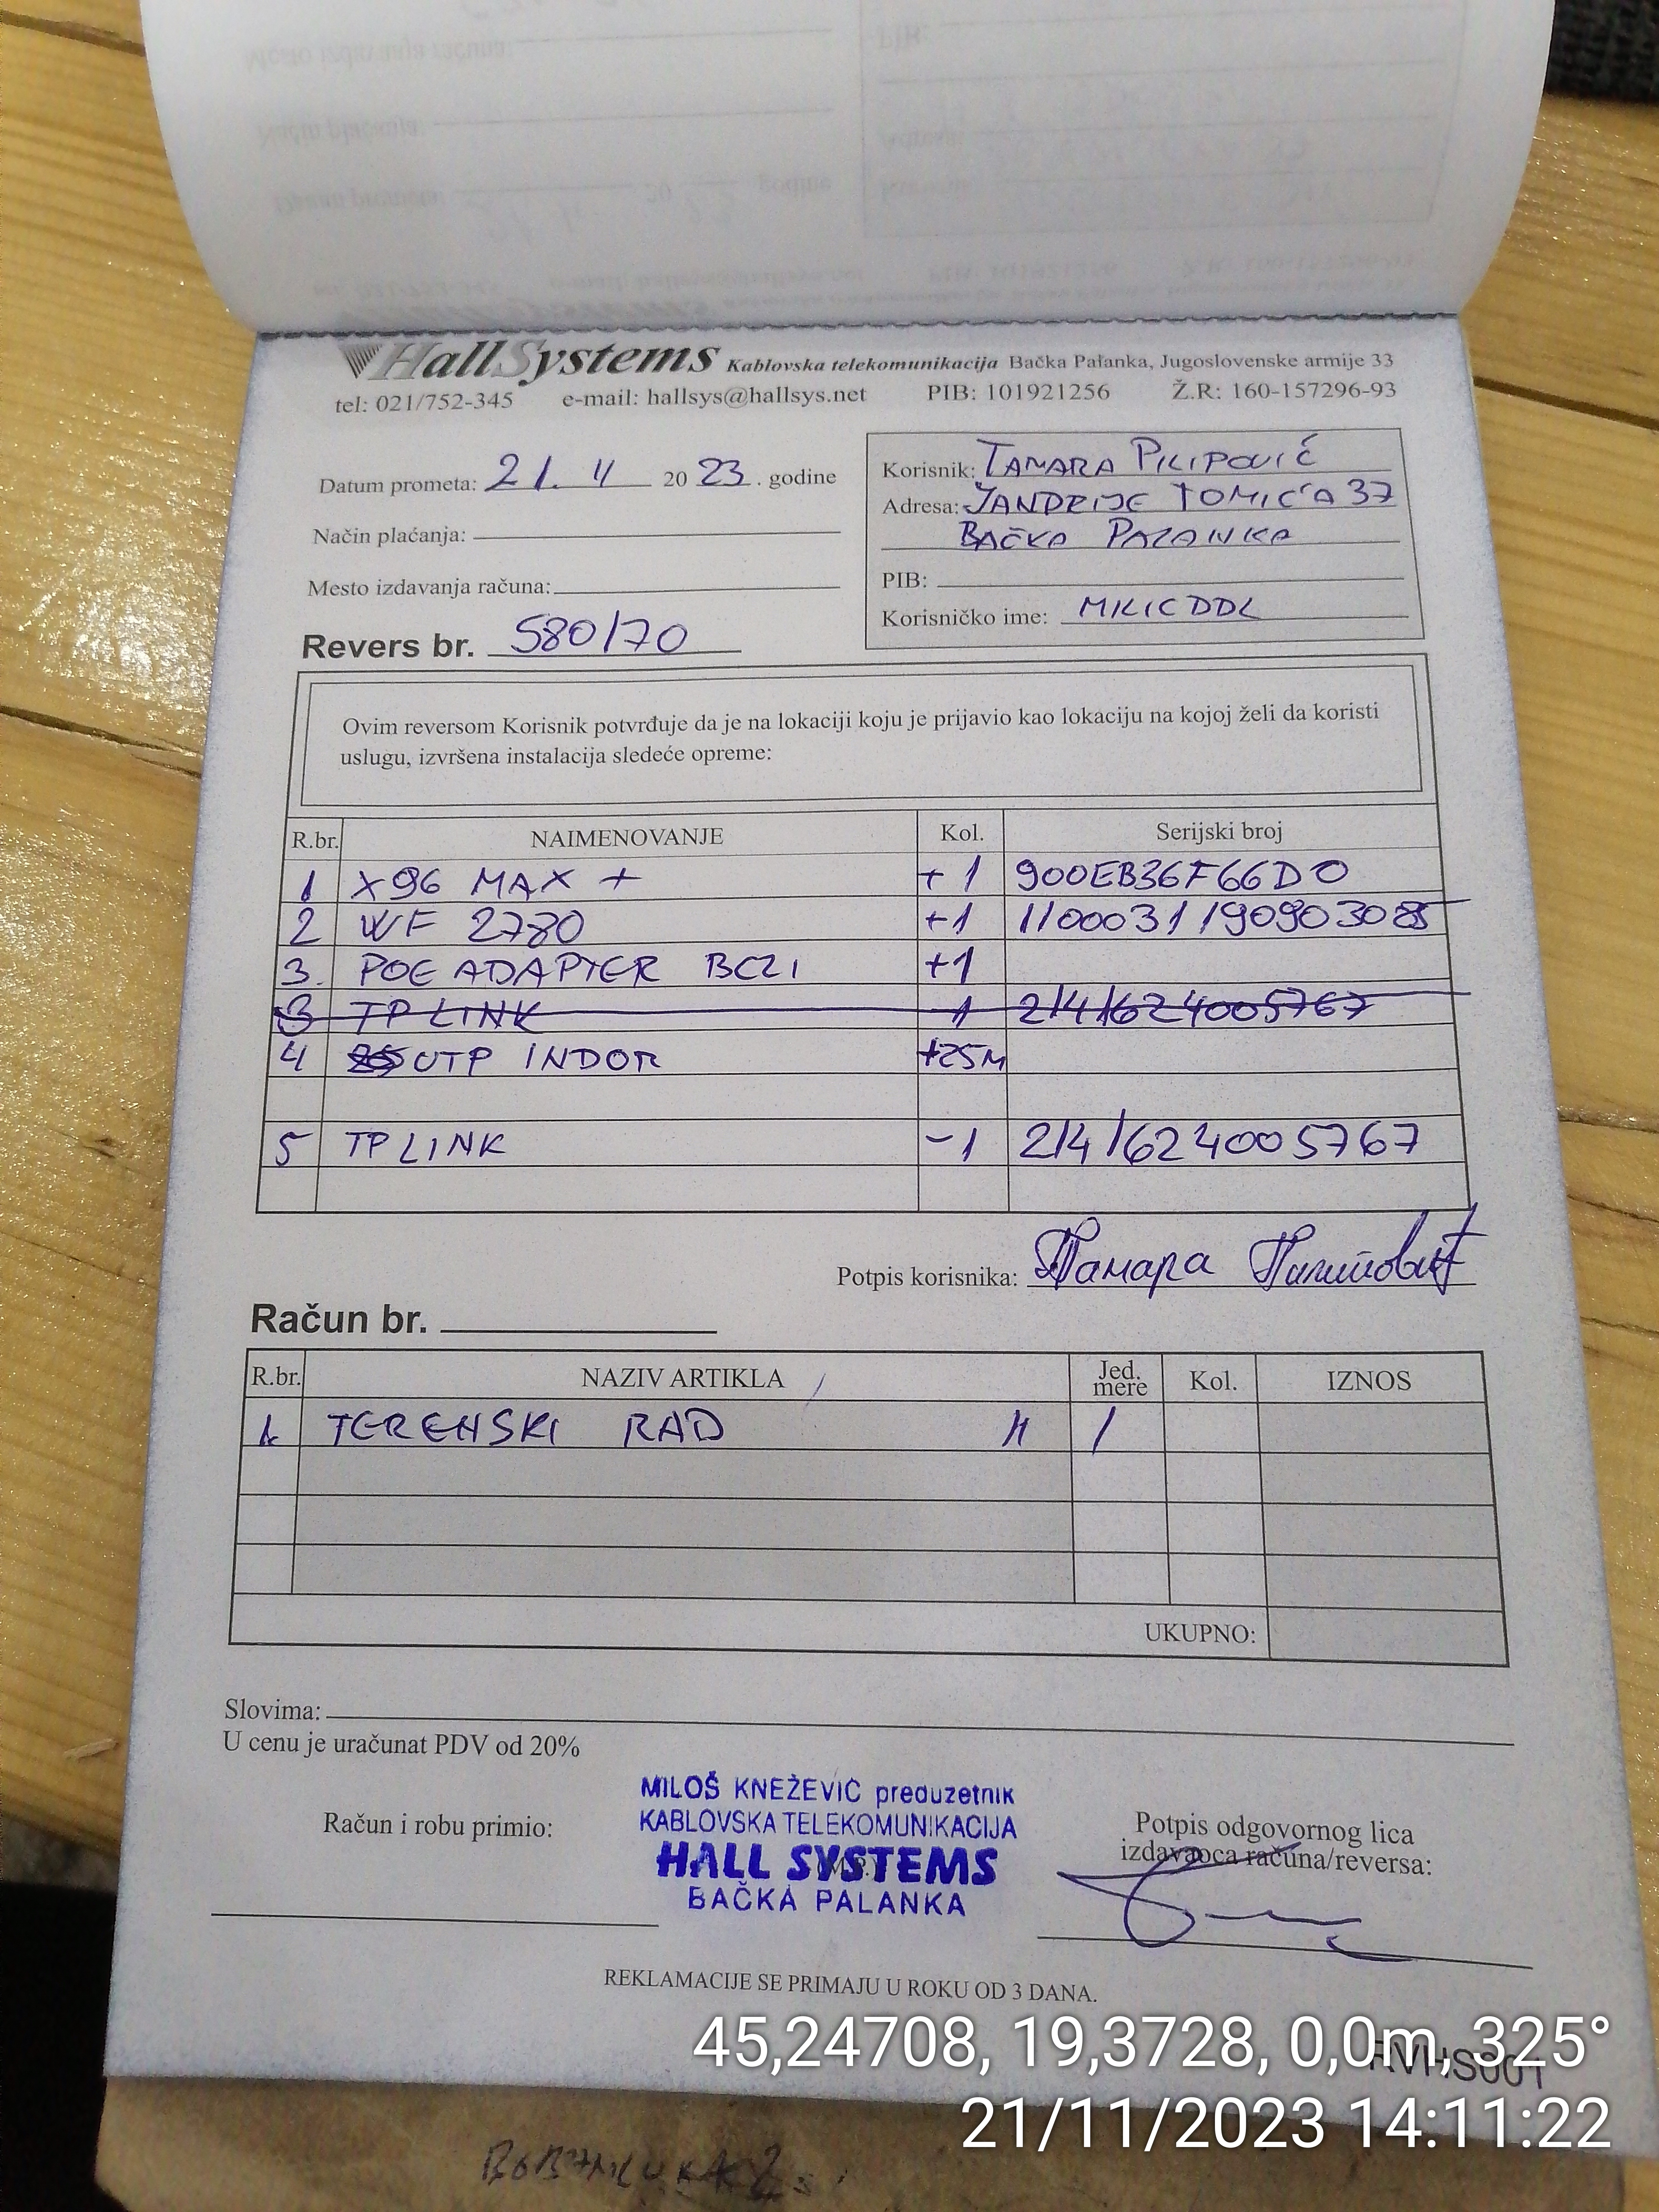 HallSystems Kablovska telekomunikacija Bačka Palanka, Jugoslovenske armije 33
tel: 021/752-345 e-mail: hallsys@hallsys.net PIB: 101921256 Ž.R: 160-157296-93
Datum prometa: 21. 11 2023. godine
Način plaćanja:
Mesto izdavanja računa:
Revers br. 580/70
Korisnik: TAMARA PILIPOVIĆ
Adresa: JANDRIJE TOMIĆA 37
BAČKA PALANKA
PIB:
Korisničko ime: MILICDDL
Ovim reversom Korisnik potvrđuje da je na lokaciji koju je prijavio kao lokaciju na kojoj želi da koristi
uslugu, izvršena instalacija sledeće opreme:
R.br. NAIMENOVANJE Kol. Serijski broj
1 X96 MAX + +1 900EB36F66D0
2 WF 2780 +1
3. POE ADAPTER BC21 +1
3 TP LINK -1 2141624005767
4 UTP INDOR +25M
5 TP LINK -1 2141624005767
Potpis korisnika: Тамара Пилиповић
Račun br.
R.br. NAZIV ARTIKLA Jed. mere Kol. IZNOS
1. TERENSKI RAD
UKUPNO:
Slovima:
U cenu je uračunat PDV od 20%
Račun i robu primio:
MILOŠ KNEŽEVIĆ preduzetnik
KABLOVSKA TELEKOMUNIKACIJA
HALL SYSTEMS
BAČKA PALANKA
Potpis odgovornog lica
izdavaoca računa/reversa:
REKLAMACIJE SE PRIMAJU U ROKU OD 3 DANA.
RVHS001
45,24708, 19,3728, 0,0m, 325°
21/11/2023 14:11:22